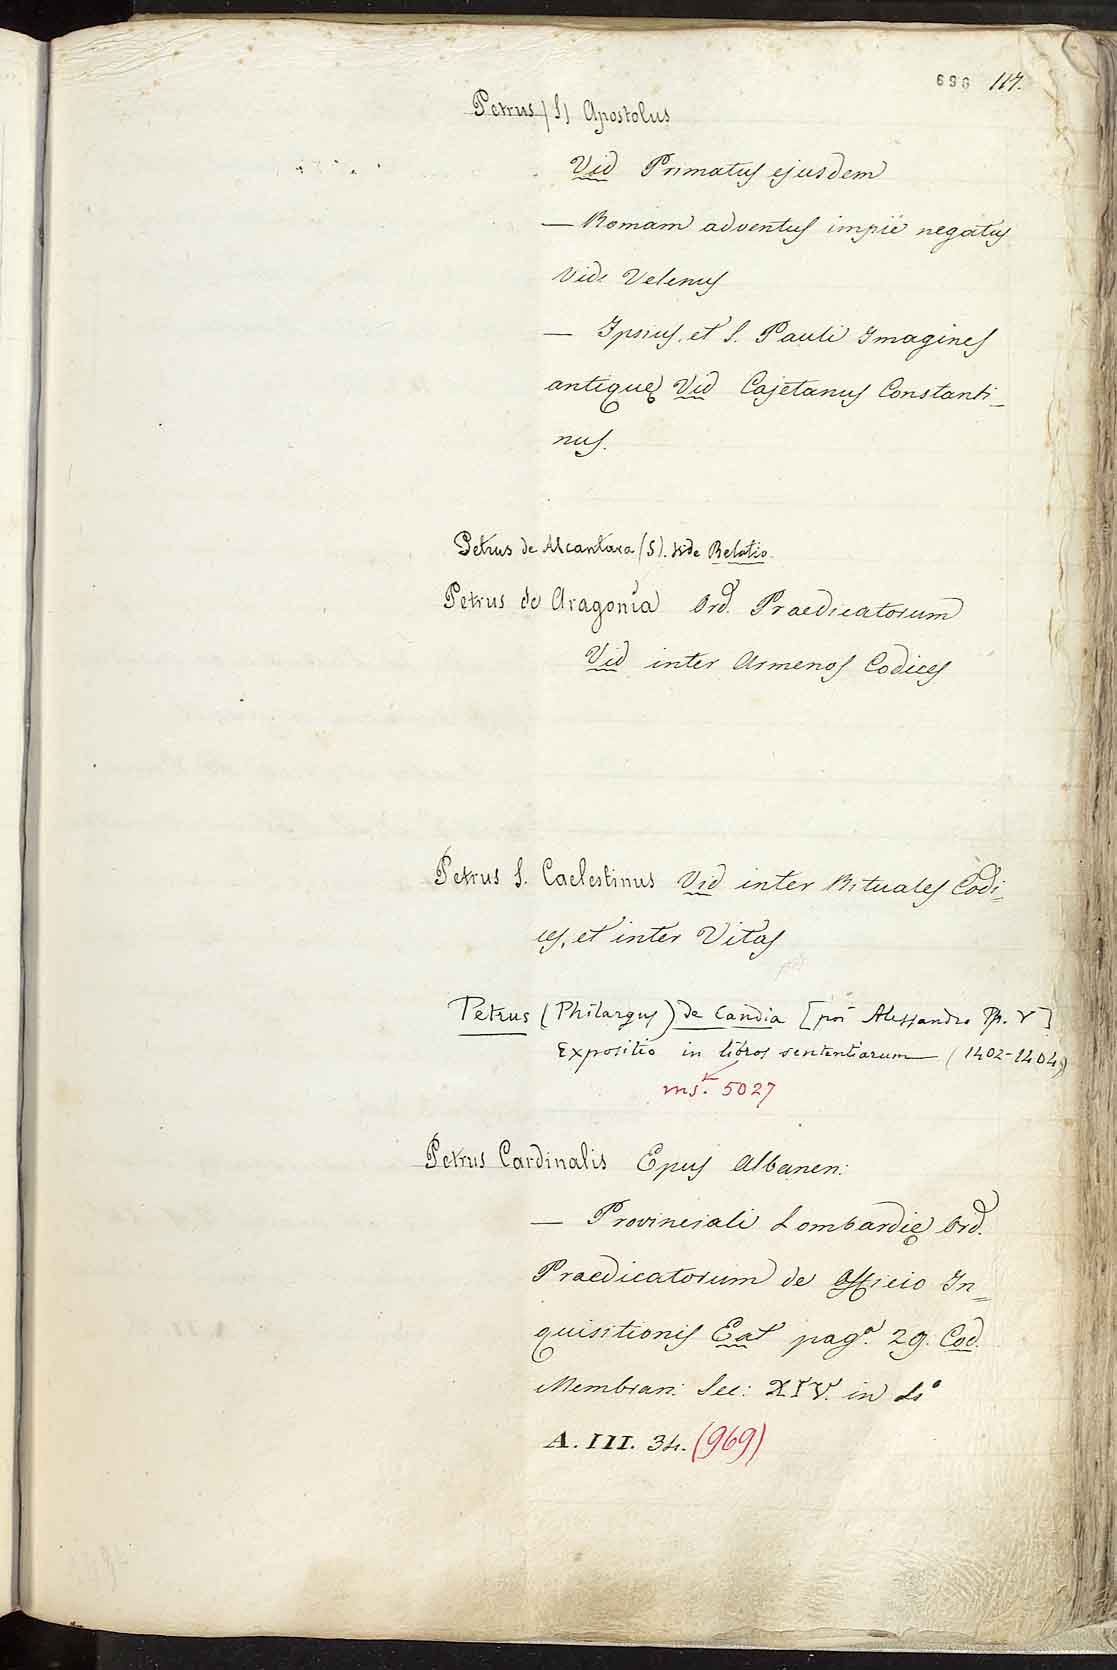 696 117.
Petrus (S) Apostolus
Vid Primatus ejusdem
— Romam adventus impie negatus
Vide Velenus
— Ipsius, et S. Pauli Imagines
antiquę Vid Cajetanus Constanti_
nus.
Petrus de Alcantara (S). Vide Relatio.
Petrus de Aragonia Ord. Praedicatorum
Vid inter Armenos Codices
Petrus S. Caelestinus Vid inter Rituales Codi=
ces, et inter Vitas
Petrus (Philargus) de Candia [poi Alessandro Pp. V]
Expositio in libros sententiarum (1402-1404)
ms. 5027
Petrus Cardinalis Epus Albanen:
— Provinciali Lombardię Ord.
Praedicatorum de Officio In=
quisitionis Eat pag.ᵃ 29. Cod.
Membran: Sec: XIV. in 4º
A. III. 34. (969)